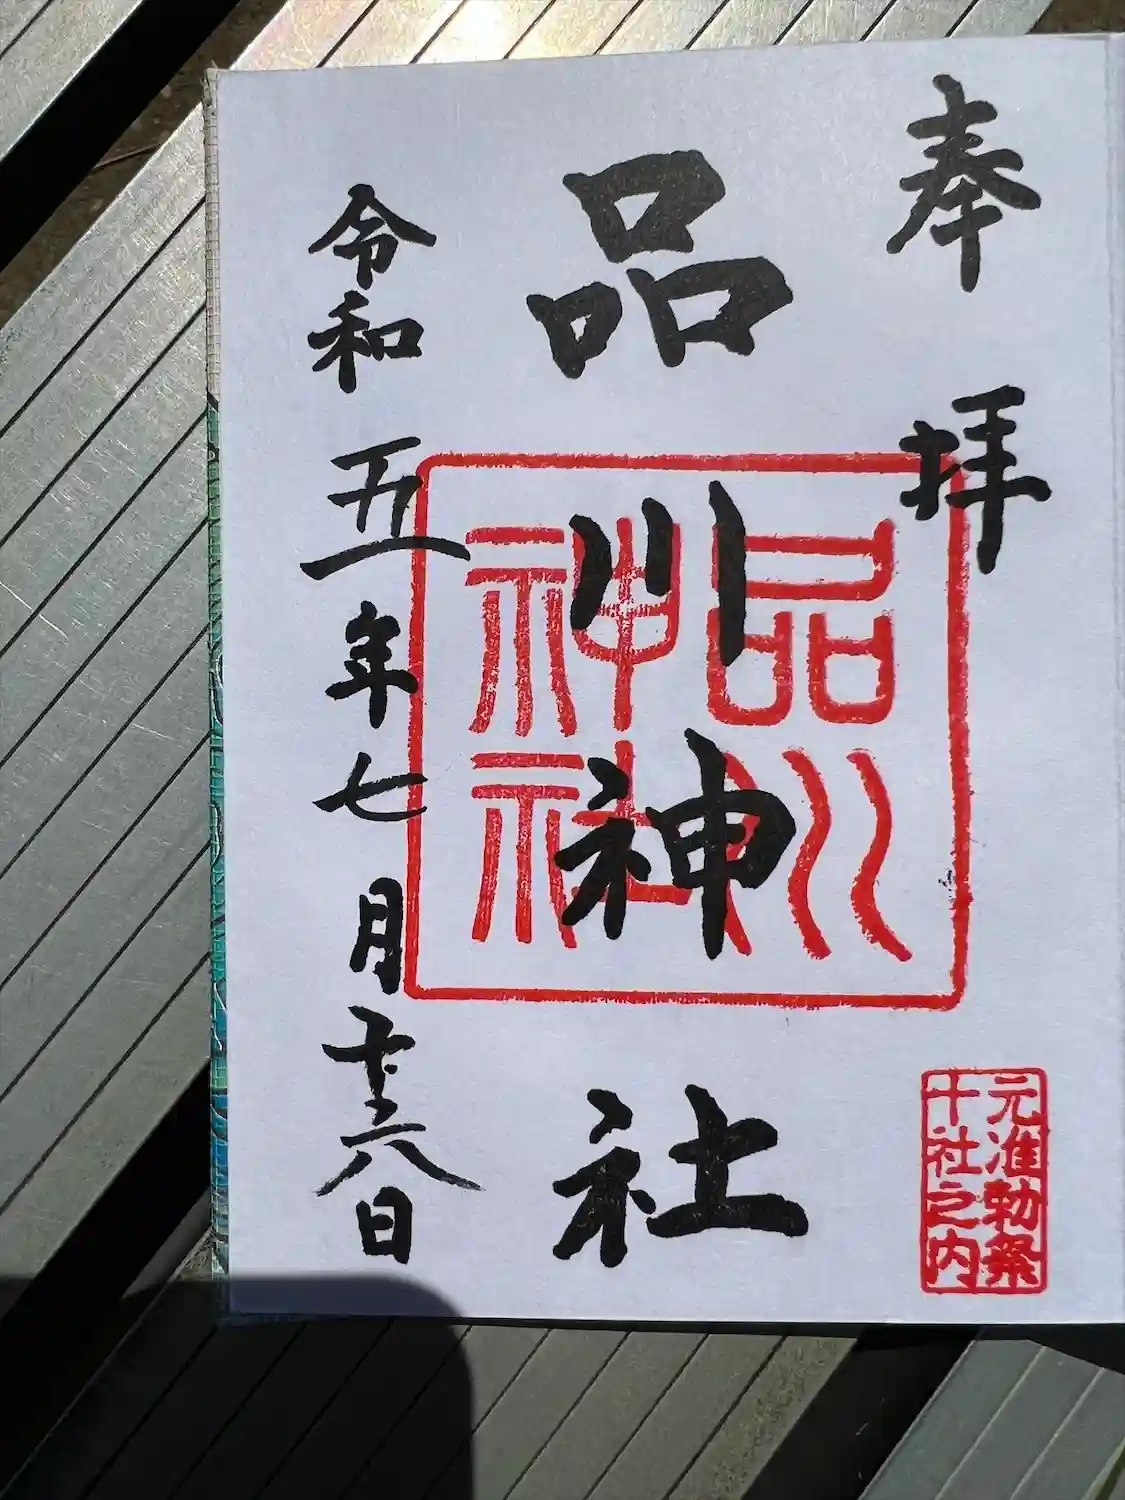 奉拝
品川神社
令和五年七月十六日
品川
神社
元准勅祭
十社之内